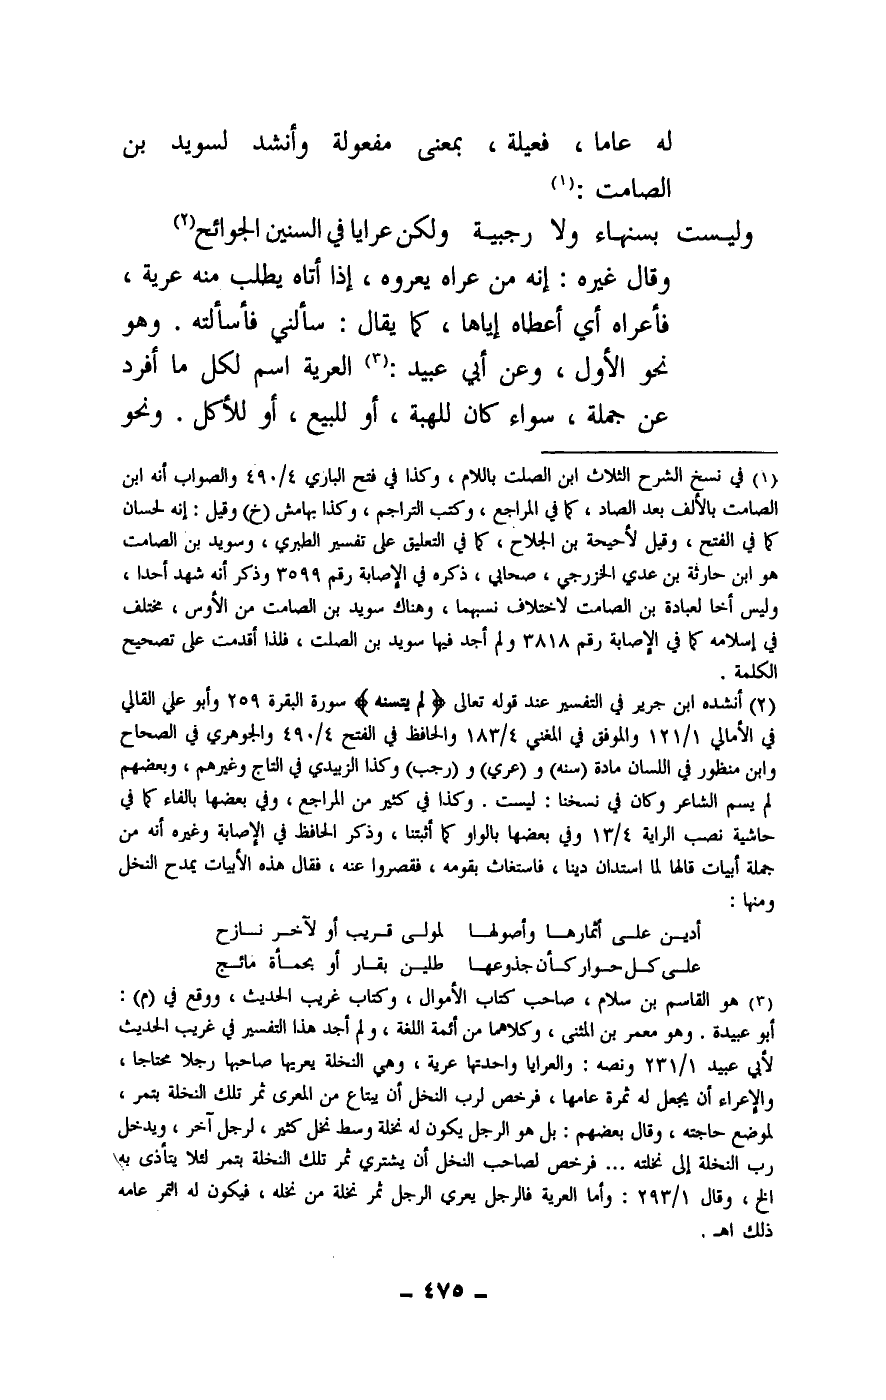 له عاما ، فعيلة ، بمعنى مفعولة وأنشد لسويد بن
الصامت :(١)
وليست بسنهاء ولا رجبية ولكن عرايا في السنين الجوائح(٢)
وقال غيره : إنه من عراه يعروه ، إذا أتاه يطلب منه عرية ،
فأعراه أي أعطاه إياها ، كما يقال : سألني فأسألته . وهو
نحو الأول ، وعن أبي عبيد :(٣) العرية اسم لكل ما أفرد
عن جملة ، سواء كان للهبة ، أو للبيع ، أو للأكل . ونحو
(١) في نسخ الشرح الثلاث ابن الصلت باللام ، وكذا في فتح الباري ٤٩٠/٤ والصواب أنه ابن
الصامت بالألف بعد الصاد ، كما في المراجع ، وكتب التراجم ، وكذا بهامش (خ) وقيل : إنه لحسان
كما في الفتح ، وقيل لأحيحة بن الجلاح ، كما في التعليق على تفسير الطبري ، وسويد بن الصامت
هو ابن حارثة بن عدي الخزرجي ، صحابي ، ذكره في الإصابة رقم ٣٥٩٩ وذكر أنه شهد أحدا ،
وليس أخا لعبادة بن الصامت لاختلاف نسبهما ، وهناك سويد بن الصامت من الأوس ، مختلف
في إسلامه كما في الإصابة رقم ٣٨١٨ ولم أجد فيها سويد بن الصلت ، فلذا أقدمت على تصحيح
الكلمة .
(٢) أنشده ابن جرير في التفسير عند قوله تعالى ﴿ لم يتسنه ﴾ سورة البقرة ٢٥٩ وأبو علي القالي
في الأمالي ١٢١/١ والموفق في المغني ١٨٣/٤ والحافظ في الفتح ٤٩٠/٤ والجوهري في الصحاح
وابن منظور في اللسان مادة (سنه) و (عري) و (رجب) وكذا الزبيدي في التاج وغيرهم ، وبعضهم
لم يسم الشاعر وكان في نسخنا : ليست . وكذا في كثير من المراجع ، وفي بعضها بالفاء كما في
حاشية نصب الراية ١٣/٤ وفي بعضها بالواو كما أثبتنا ، وذكر الحافظ في الإصابة وغيره أنه من
جملة أبيات قالها لما استدان دينا ، فاستغاث بقومه ، فقصروا عنه ، فقال هذه الأبيات يمدح النخل
ومنها :
أدين على أثمارها وأصولها لمولى قريب أو لآخر نازح
على كل حوار كأن جذوعها طلين بقار أو بحمأة مائح
(٣) هو القاسم بن سلام ، صاحب كتاب الأموال ، وكتاب غريب الحديث ، ووقع في (م) :
أبو عبيدة . وهو معمر بن المثنى ، وكلاهما من أئمة اللغة ، ولم أجد هذا التفسير في غريب الحديث
لأبي عبيد ٢٣١/١ ونصه : والعرايا واحدتها عرية ، وهي النخلة يعريها صاحبها رجلا محتاجا ،
والإعراء أن يجعل له ثمرة عامها ، فرخص لرب النخل أن يبتاع من المعرى ثمر تلك النخلة بتمر ،
لموضع حاجته ، وقال بعضهم : بل هو الرجل يكون له نخلة وسط نخل كثير ، لرجل آخر ، ويدخل
رب النخلة إلى نخلته ... فرخص لصاحب النخل أن يشتري ثمر تلك النخلة بتمر لئلا يتأذى به
الخ ، وقال ٢٩٣/١ : وأما العرية فالرجل يعري الرجل ثمر نخلة من نخله ، فيكون له الثمر عامه
ذلك اهـ .
ـ ٤٧٥ ـ